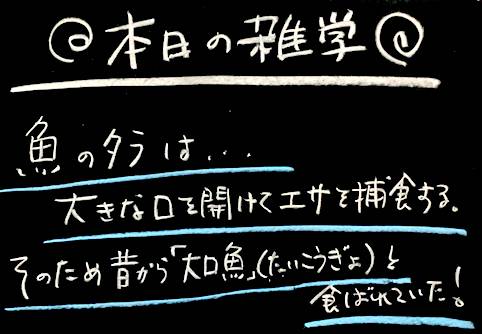 本日の雑学
魚のタラは...
大きな口を開けてエサを捕食する。
そのため昔から「大口魚」(たいこうぎょ)と
食ばれていた!